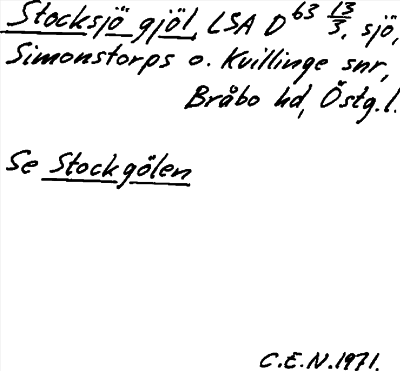 Stocksjö gjöl, LSA D 63 13/3, sjö,
Simonstorps o. Kvillinge snr,
Bråbo hd, Östg.l.
Se Stockgölen
C.E.N. 1971.